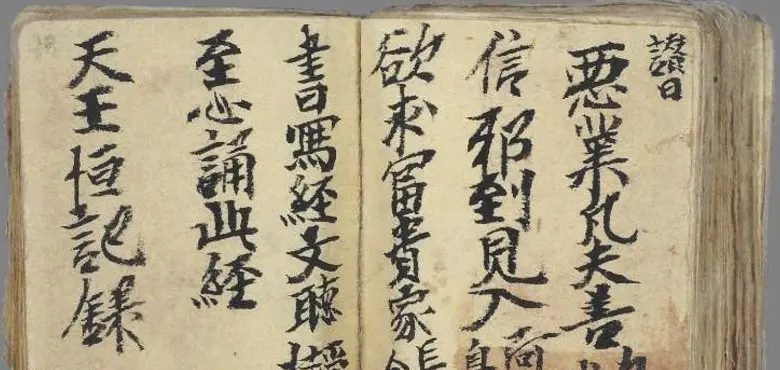 讚曰
惡業凡夫善
信邪到見入
欲求富貴家
書寫經文聽
至心誦此經
天王恒記錄